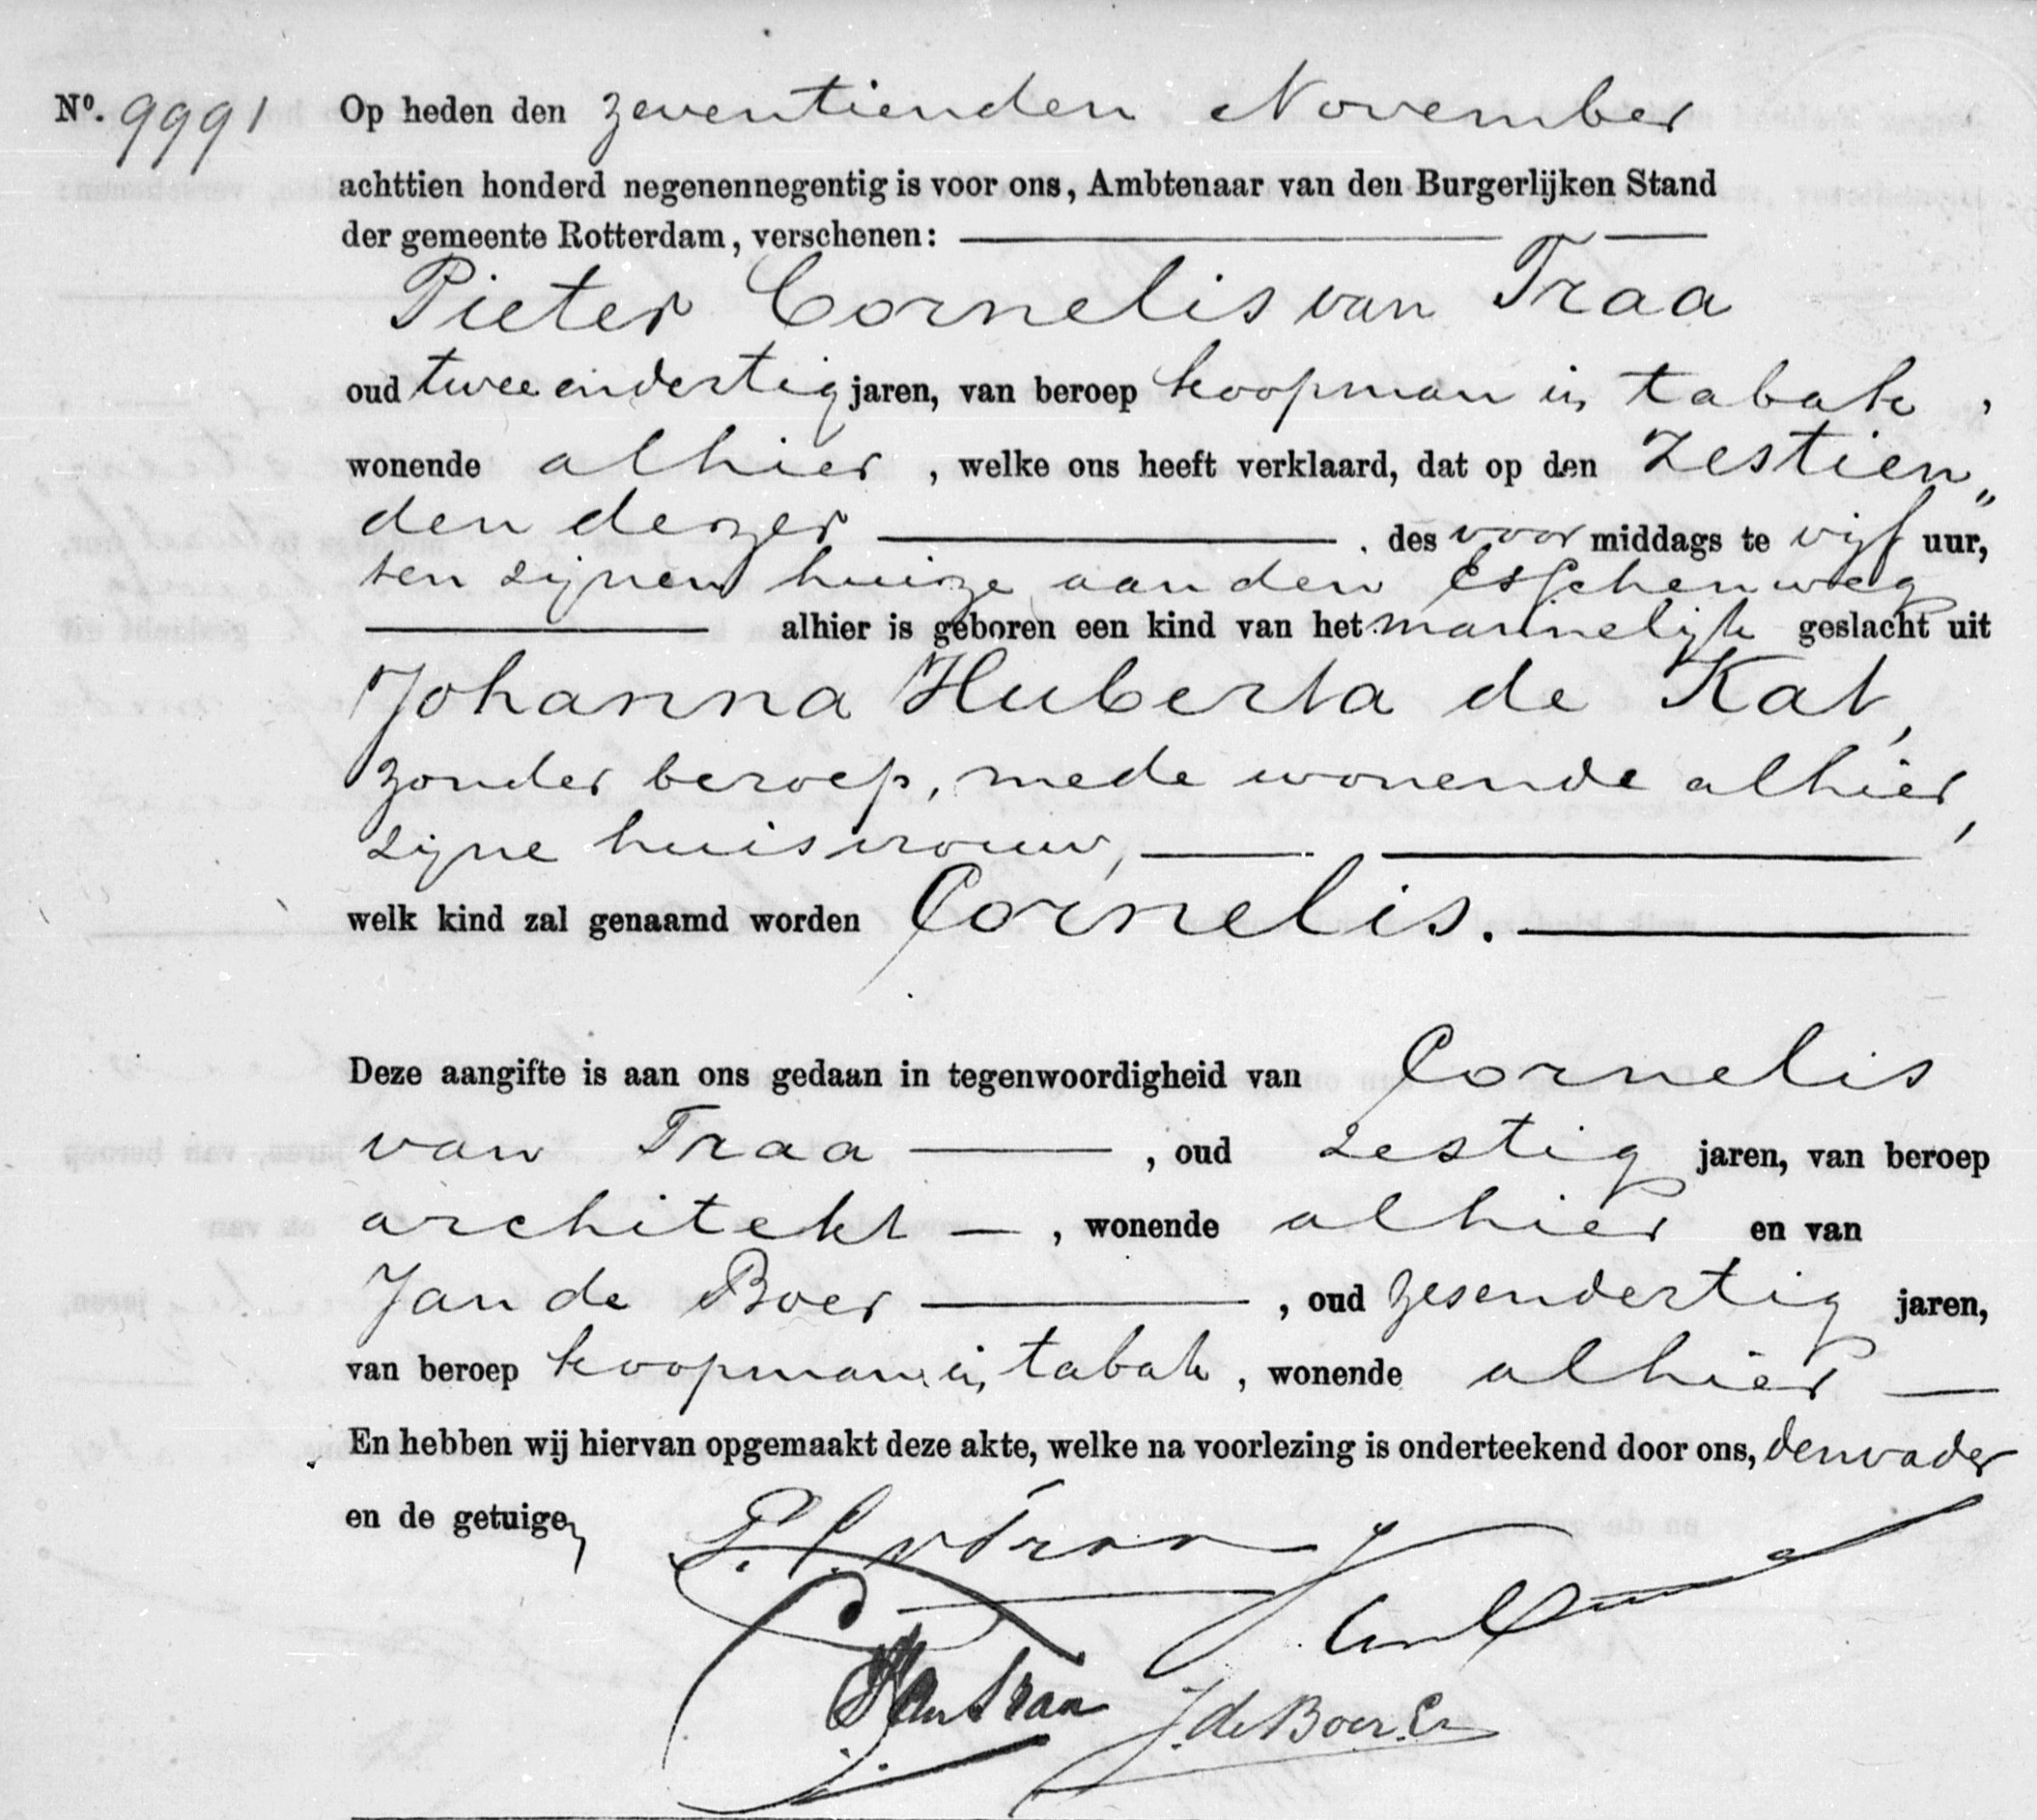 Nº. 9991 Op heden den zeventienden November
achttien honderd negenennegentig is voor ons, Ambtenaar van den Burgerlijken Stand
der gemeente Rotterdam, verschenen:
Pieter Cornelis van Traa
oud twee endertig jaren, van beroep koopman in tabak,
wonende alhier, welke ons heeft verklaard, dat op den zestien„
den dezer des voor middags te vijf uur,
ten zijnen huize aan den Esschenweg
alhier is geboren een kind van het mannelijk geslacht uit
Johanna Huberta de Kat,
zonder beroep, mede wonende alhier,
zijne huisvrouw,
welk kind zal genaamd worden Cornelis.
Deze aangifte is aan ons gedaan in tegenwoordigheid van Cornelis
van Traa, oud zestig jaren, van beroep
architekt, wonende alhier en van
Jan de Boer, oud zesendertig jaren,
van beroep koopman in tabak, wonende alhier
En hebben wij hiervan opgemaakt deze akte, welke na voorlezing is onderteekend door ons, den vader
en de getuigen
P. C. v Traa
C van Traa J. de Boer